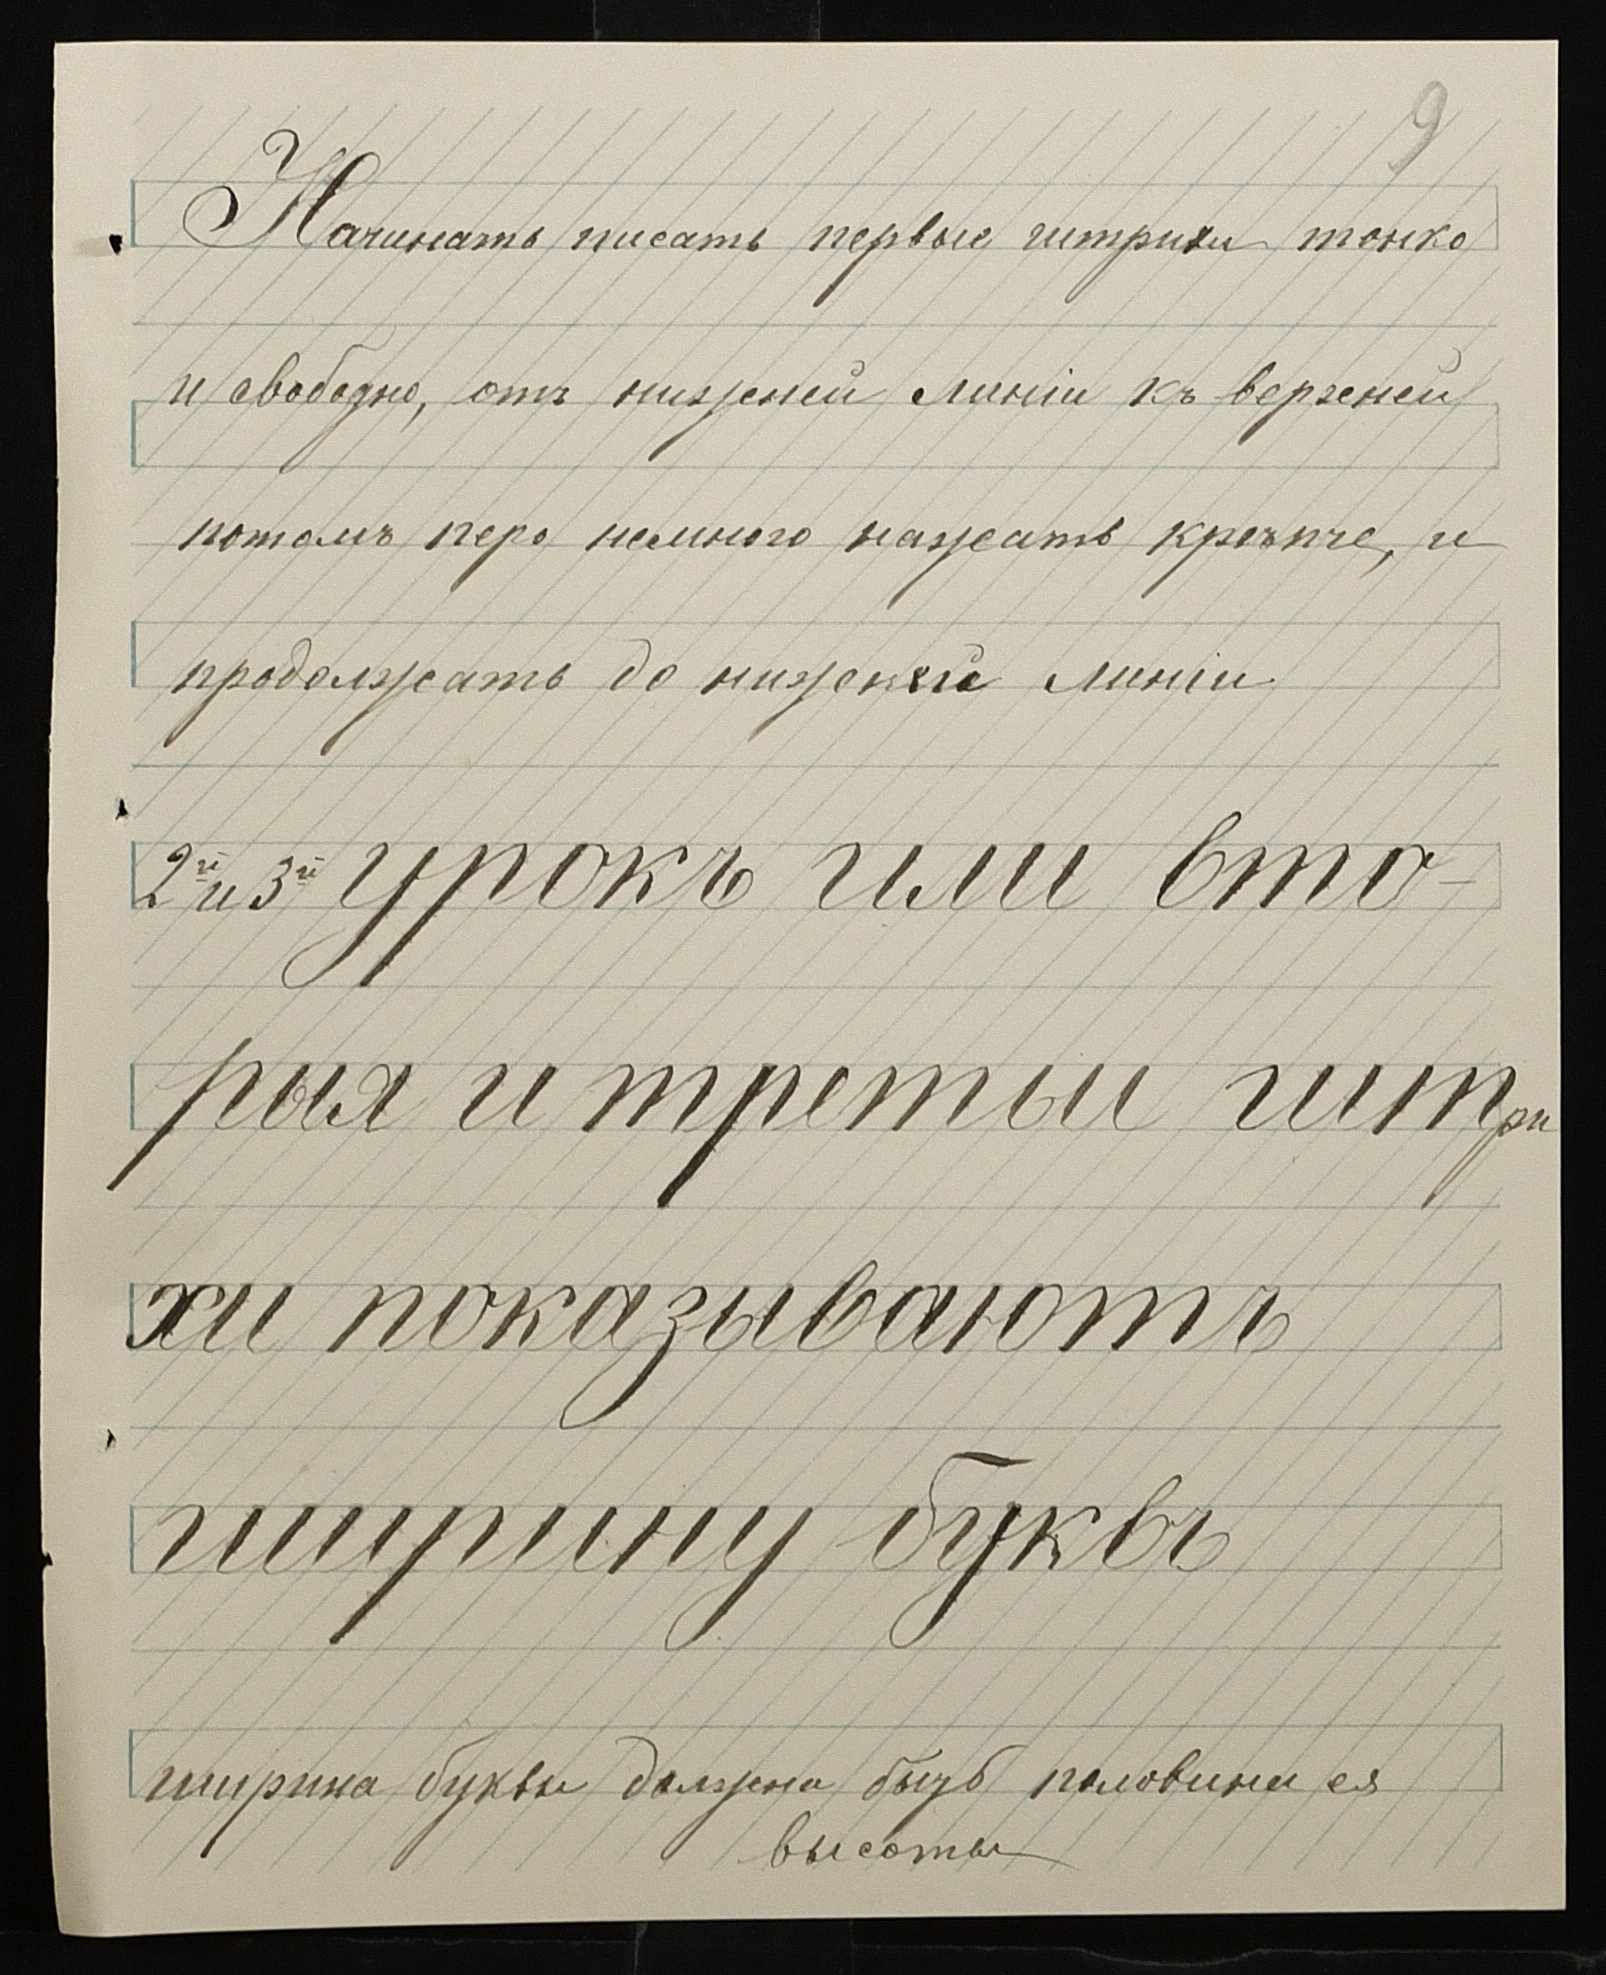 9
Начинать писать первые штрихи тонко
и свободно, отъ нижней линіи къ верхней
потомъ перо немного нажать крѣпче, и
продолжать до нижней линіи
2й и 3й урокъ или вто-
рыя и третьи штри
хи показываютъ
ширину буквъ
ширина буквы должна быть половины ея
высоты